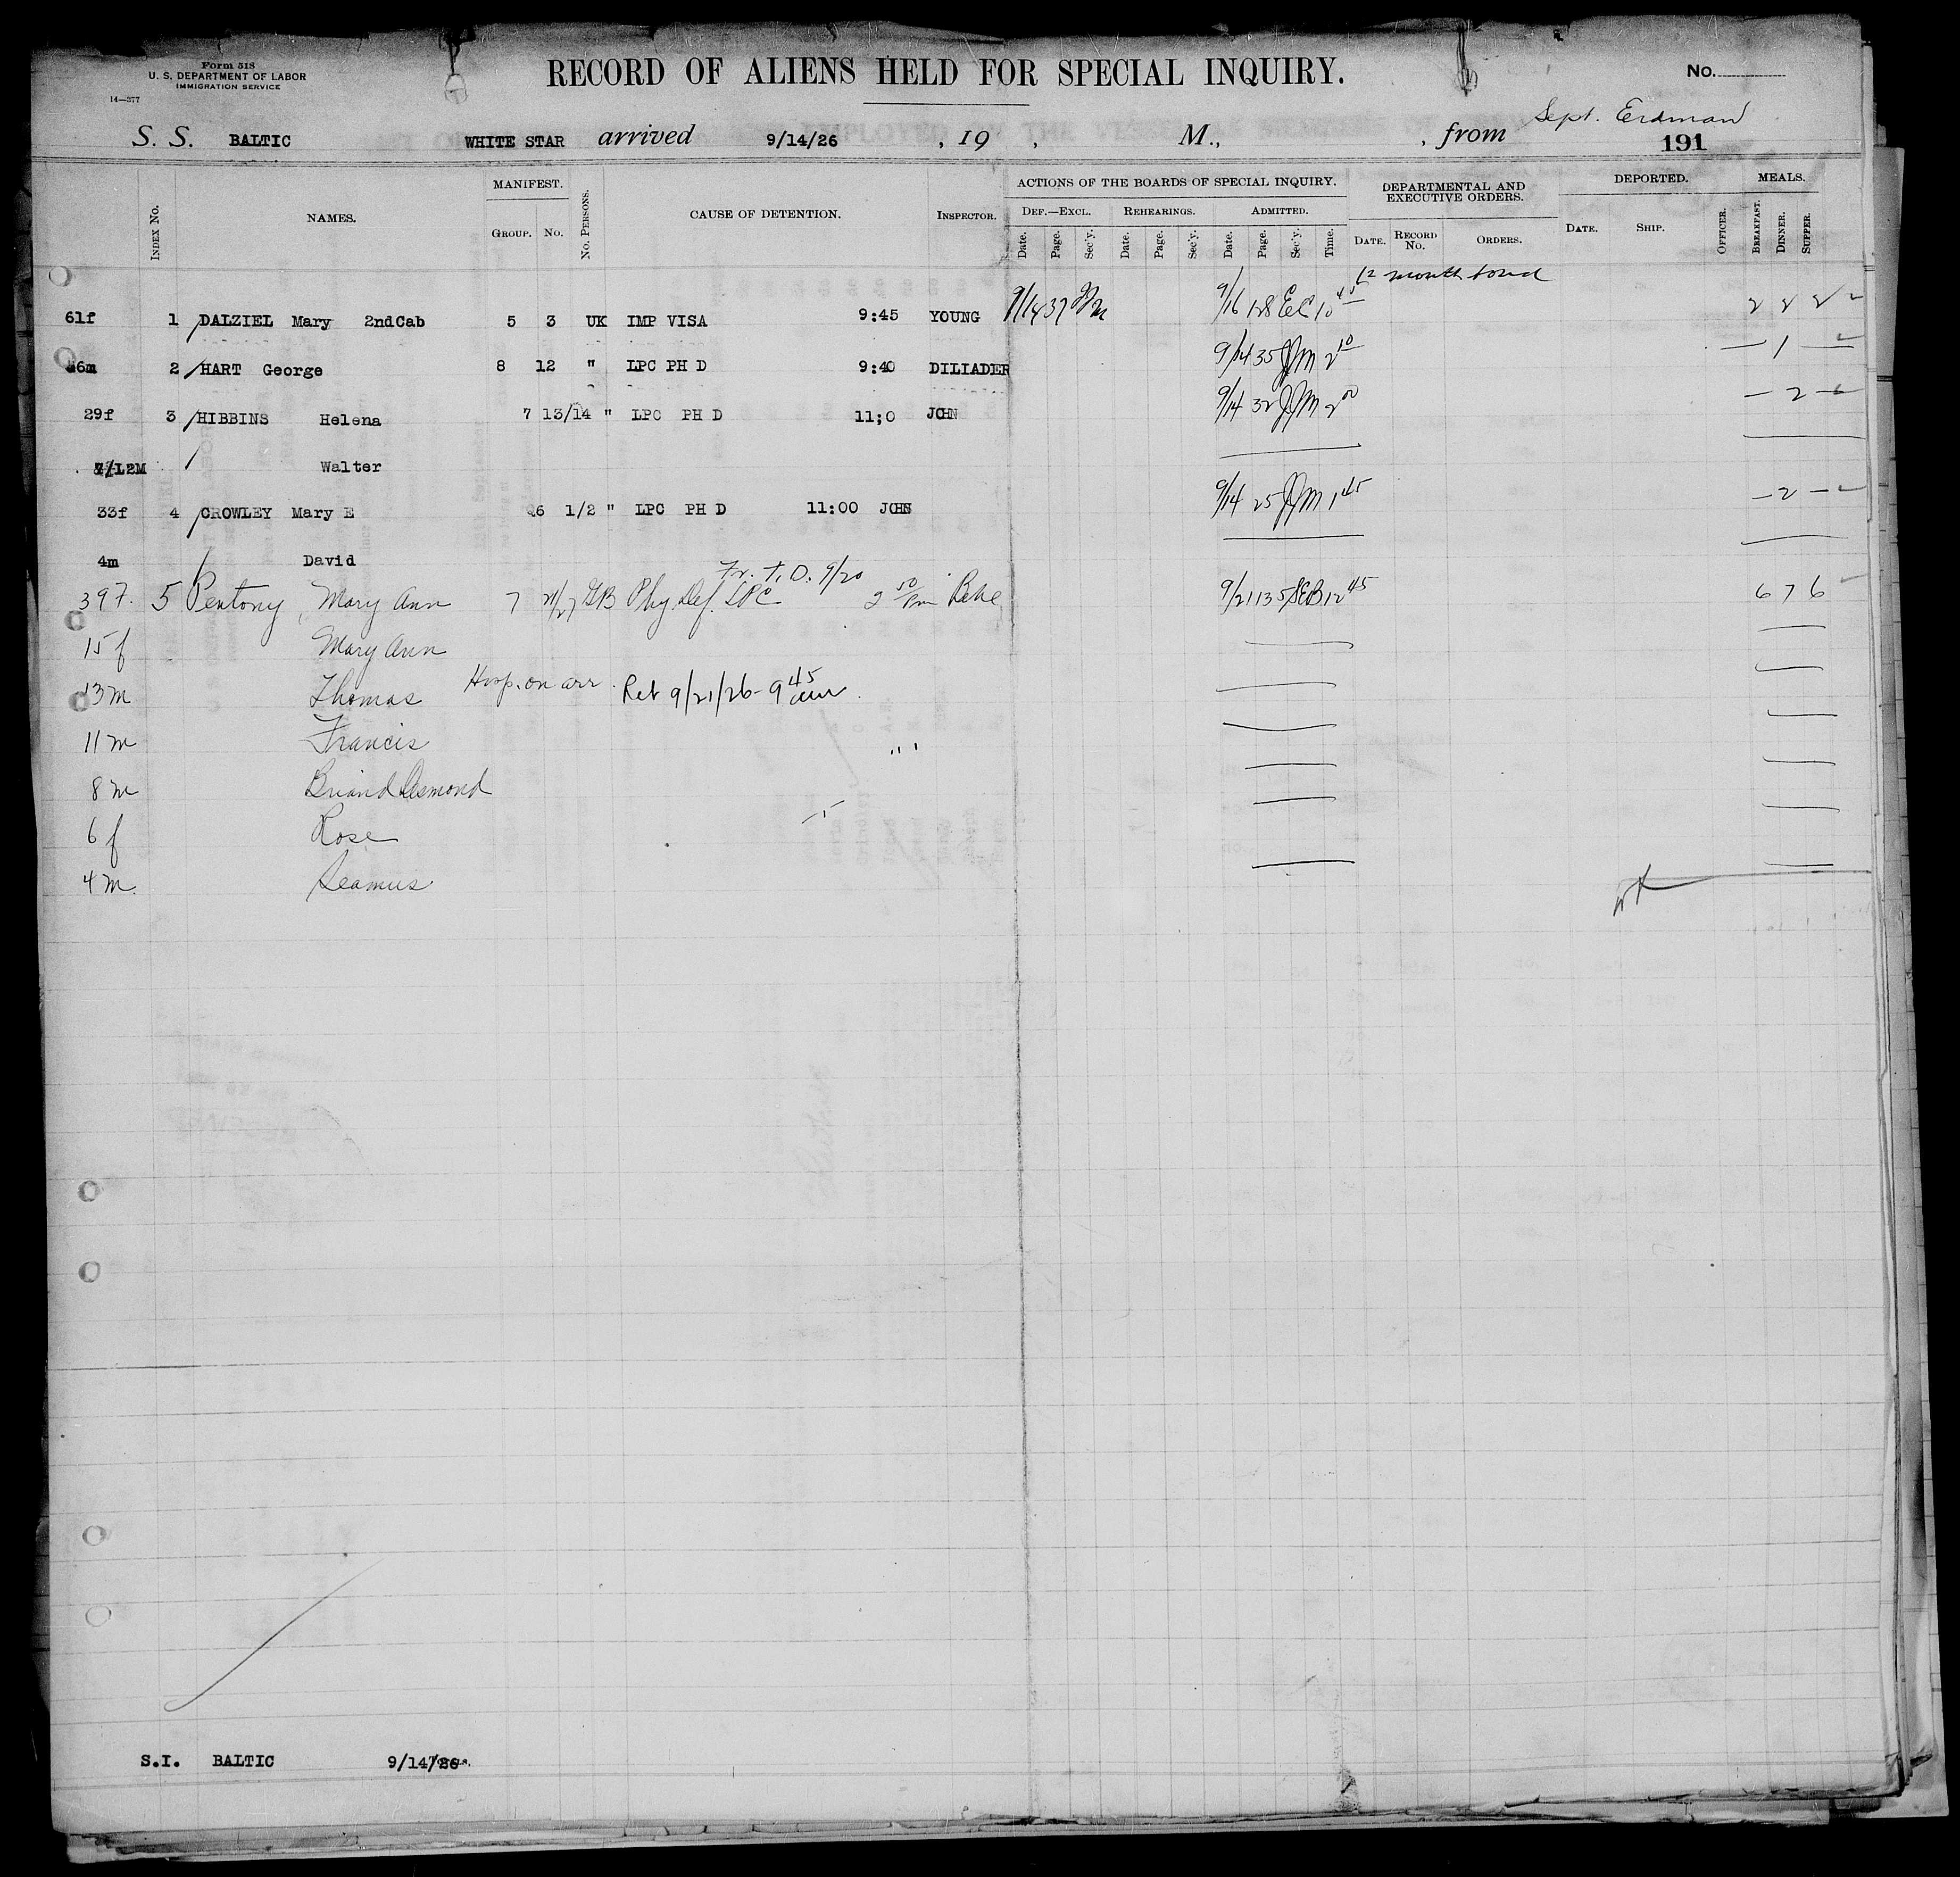 Form 518
U. S. DEPARTMENT OF LABOR
IMMIGRATION SERVICE
14—377
RECORD OF ALIENS HELD FOR SPECIAL INQUIRY.
No.
Sept. Erdman
S. S. BALTIC WHITE STAR arrived 9/14/26 , 19 , M., , from 191
INDEX No. NAMES. MANIFEST. GROUP. No. No. PERSONS. CAUSE OF DETENTION. INSPECTOR. ACTIONS OF THE BOARDS OF SPECIAL INQUIRY. DEF.—EXCL. Date. Page. Sec'y. REHEARINGS. Date. Page. Sec'y. ADMITTED. Date. Page. Sec'y. Time. DEPARTMENTAL AND EXECUTIVE ORDERS. DATE. RECORD No. ORDERS. DEPORTED. DATE. SHIP. OFFICER. MEALS. BREAKFAST. DINNER. SUPPER.
12 month bond
61f 1 DALZIEL Mary 2ndCab 5 3 UK IMP VISA 9:45 YOUNG 9/14 37 9/16 128 EC 10 45 2 2 2
2 HART George 8 12 " LPC PH D 9:40 DILIADER 9/14 35 JJM 2 10 — 1 —
29f 3 HIBBINS Helena 7 13/14 " LPC PH D 11;0 JOHN 9/14 32 JJM 2 00 — 2 —
Walter
33f 4 CROWLEY Mary E 26 1/2 " LPC PH D 11:00 JOHN 9/14 25 JJM 1 45 — 2 —
4m David
Fr. T.D. 9/20
39f. 5 Pentony, Mary Ann 7 21/27 GB Phy Def. LPC 2 50 Pm 9/21 135 SEB 12 45 6 7 6
15 f Mary Ann
13 m Thomas Hosp. on arr. Ret 9/21/26 - 9 45 am.
11 m Francis
8 m Briand Desmond
6 f Rose
4 m. Seamus
S.I. BALTIC 9/14/26